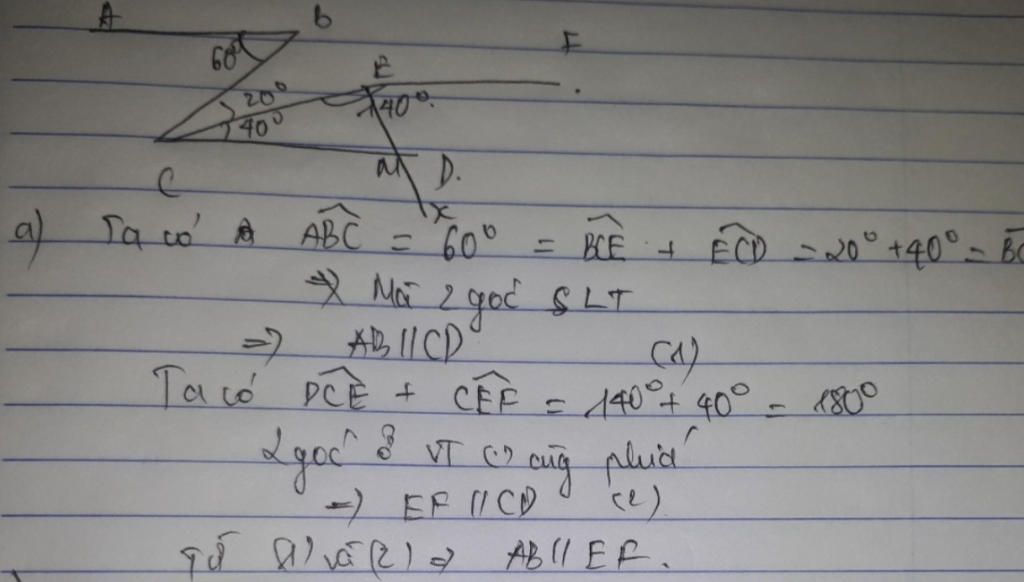 A B
60° E F
20° 40°.
40°
C M D.
x
a) Ta có ABC = 60° = BCE + ECD = 20° + 40° =
=> Mà 2 góc SLT
=> AB // CD (1)
Ta có DCE + CEF = 140° + 40° = 180°
2 góc ở VT cùng phía
=> EF // CD (2)
Từ (1) và (2) => AB // EF.